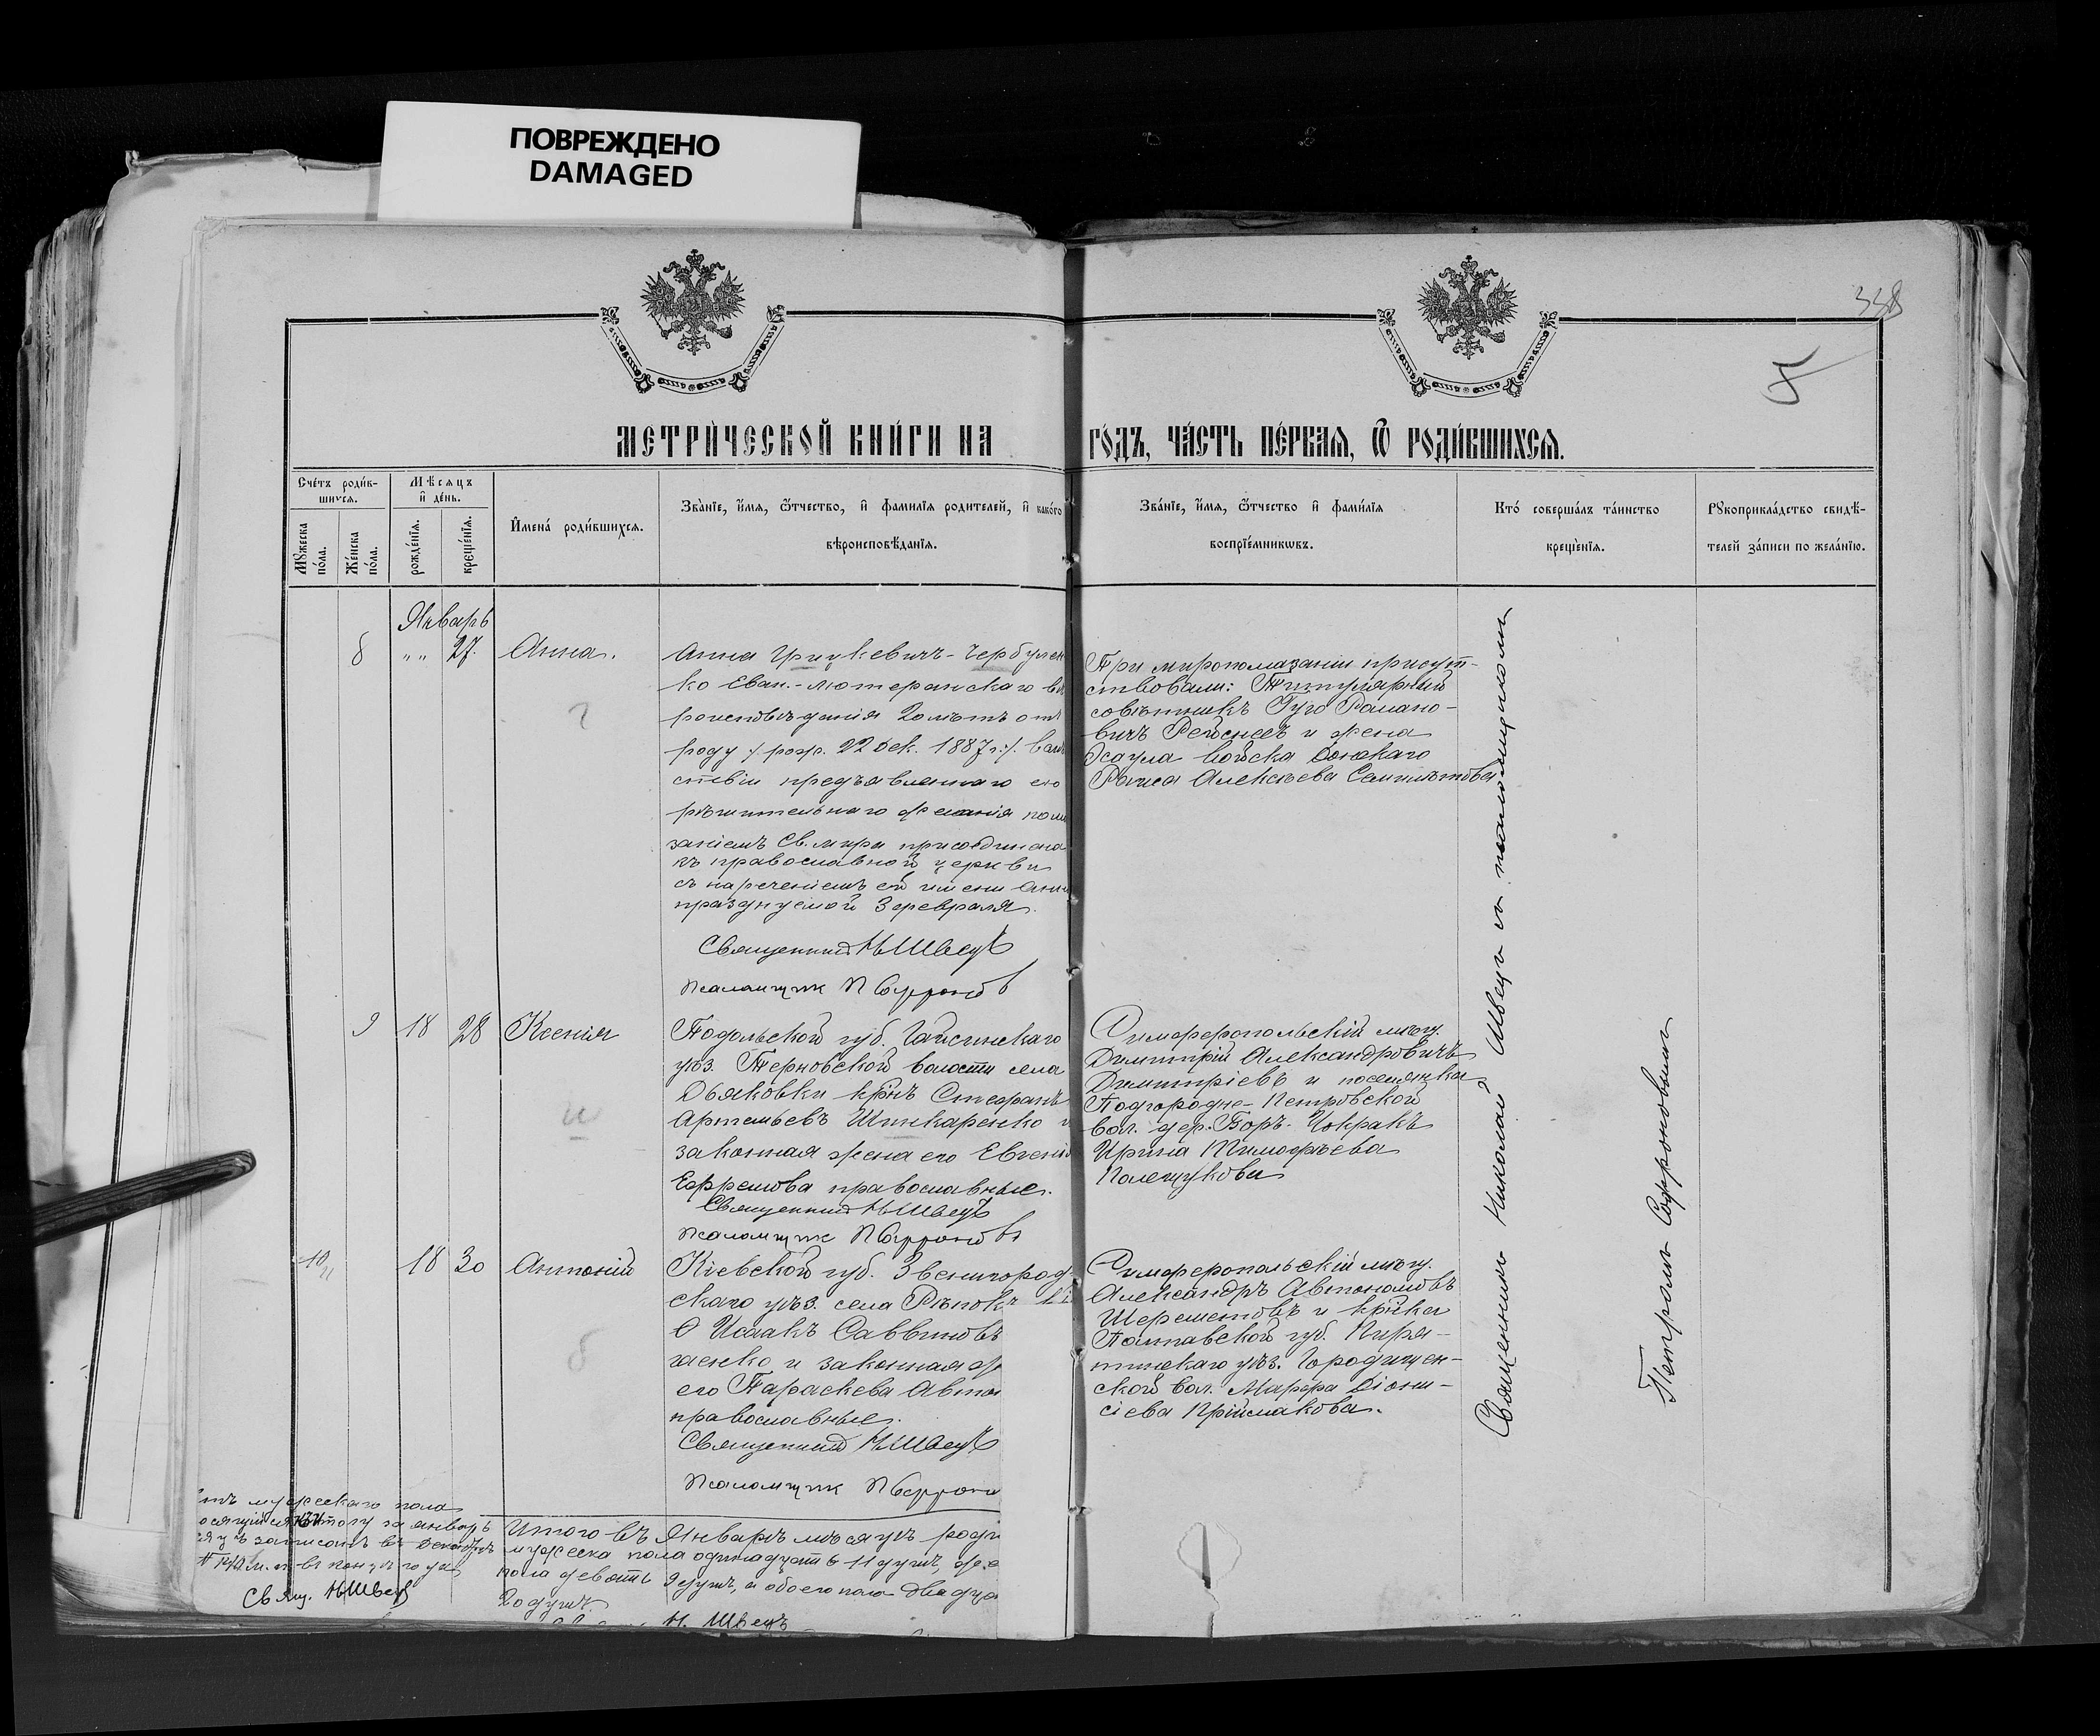 ПОВРЕЖДЕНО
DAMAGED
338
5
МЕТРИ́ЧЕСКОЙ КНИ́ГИ НА ГО́ДЪ, ЧА́СТЬ ПЕ́РВАЯ, Ѿ РОДИ́ВШИХСЯ.
Сче́тъ роди́в-
шихся.
Мꙋжеска по́ла.
Же́нска по́ла.
Мѣсяцъ
и҆ де́нь.
рожде́нїя.
креще́нїя.
И҆мена́ роди́вшихся.
Зва́нїе, и҆́мя, ѻ҆́тчество, и҆ фами́лїя роди́телей, и҆ како́го
вѣроисповѣ́данїя.
Зва́нїе, и҆́мя, ѻ҆́тчество и҆ фами́лїя
воспрїе́мникѡвъ.
Кто́ соверша́лъ та́инство
креще́нїя.
Рꙋкоприкла́дство свидѣ́-
телей за́писи по жела́нїю.
Январь
8 „ „ 27. Анна.
Анна Грицкевичъ-Чербулен
ко Еван.-лютеранскаго вѣ
роисповѣданія 20 лѣтъ отъ
роду /: рожд. 22 дек. 1887 г. :/ 
ствіи предъявленнаго ею
рѣшительнаго желанія пома
заніемъ Св. мира присоединена
къ православной церкви
съ нареченіемъ ей имени Анны
празднуемой 3 февраля.
Священникъ Н Швецъ
Псаломщик П Софронов
При миропомазаніи присут-
ствовали: Титулярный
совѣтникъ Гуго Романо-
вичъ и жена
Эсаула войска Донскаго
Раиса Алексѣева Семилѣтова
9 18 28 Ксенія
Подольской губ. Гайсинскаго
уѣз. Терновской волости села
Дьяковки кр-нъ Стефанъ
Артемьевъ Шинкаренко и
законная жена его Евгенія
Ефремова православные.
Священникъ Н Швецъ
Псаломщик П Софронов
Симферопольскій мѣщ.
Димитрій Александровичъ
Димитріевъ и поселянка
Подгородне-Петровской
вол. дер. Боръ-Чокракъ
Ирина Тимофѣева
Полещукова
10 18 30 Антоній
Кіевской губ. Звенигород
скаго уѣз. села Рѣпокъ
Исаакъ Саввиновъ
и законная
его Параскева
православные.
Священникъ Н Швецъ
Псаломщик П Софрон
Симферопольскій мѣщ.
Александръ Автономовъ
Шереметовъ и кр-нка
Полтавской губ. Пиря-
тинскаго уѣз. Городищен-
ской вол. Марфа Діони-
сіева Пріймакова.
Священникъ Николай Швецъ съ псаломщикомъ
Петромъ Софроновымъ
мужескаго пола
за январь
записанъ въ
Свящ. Н Швецъ
Итого въ Январѣ мѣсяцѣ роди
мужеска пола одинадцать 11 душъ, же
пола девять 9 душъ, а обоего пола двадца
20 душъ.
Н. Швецъ